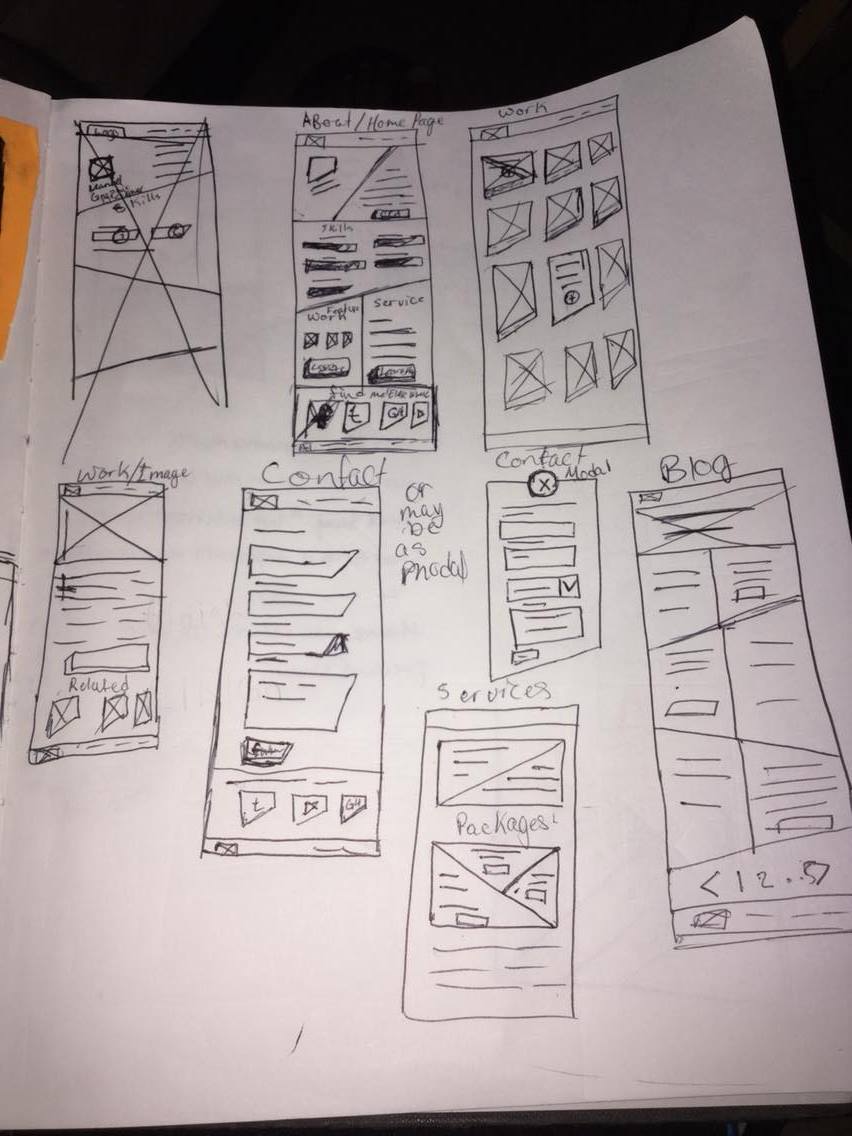 Logo
Skills
About/Home Page
Skills
Work
Feature
Service
find me
t
GH
Work
Work/Image
Related
Contact
t
GH
or
may
be
as
Modal
Contact
Modal
Services
Packages
Blog
< 1 2 .. 5>